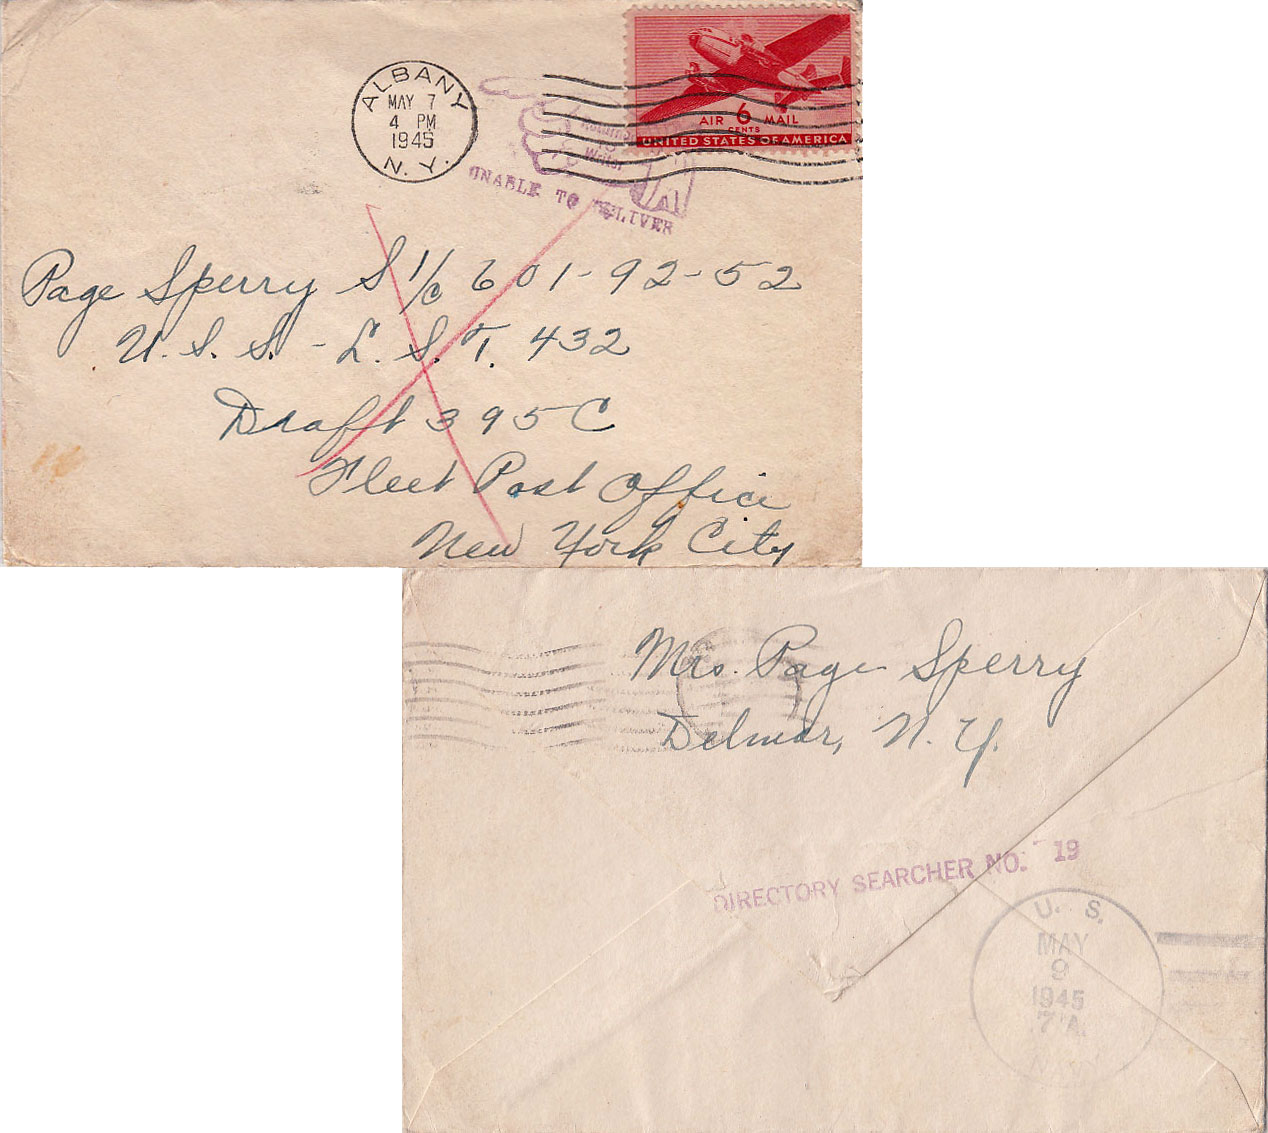 ALBANY
MAY 7
4 PM
1945
N. Y.
Returned
to
Writer
UNABLE TO DELIVER
AIR 6 MAIL
CENTS
UNITED STATES OF AMERICA
Page Sperry S 1/c 601-92-52
U.S.S. - L.S.T. 432
Draft 395C
Fleet Post Office
New York City
Mrs. Page Sperry
Delmar, N.Y.
DIRECTORY SEARCHER NO. 19
U. S.
MAY
9
1945
7 A.